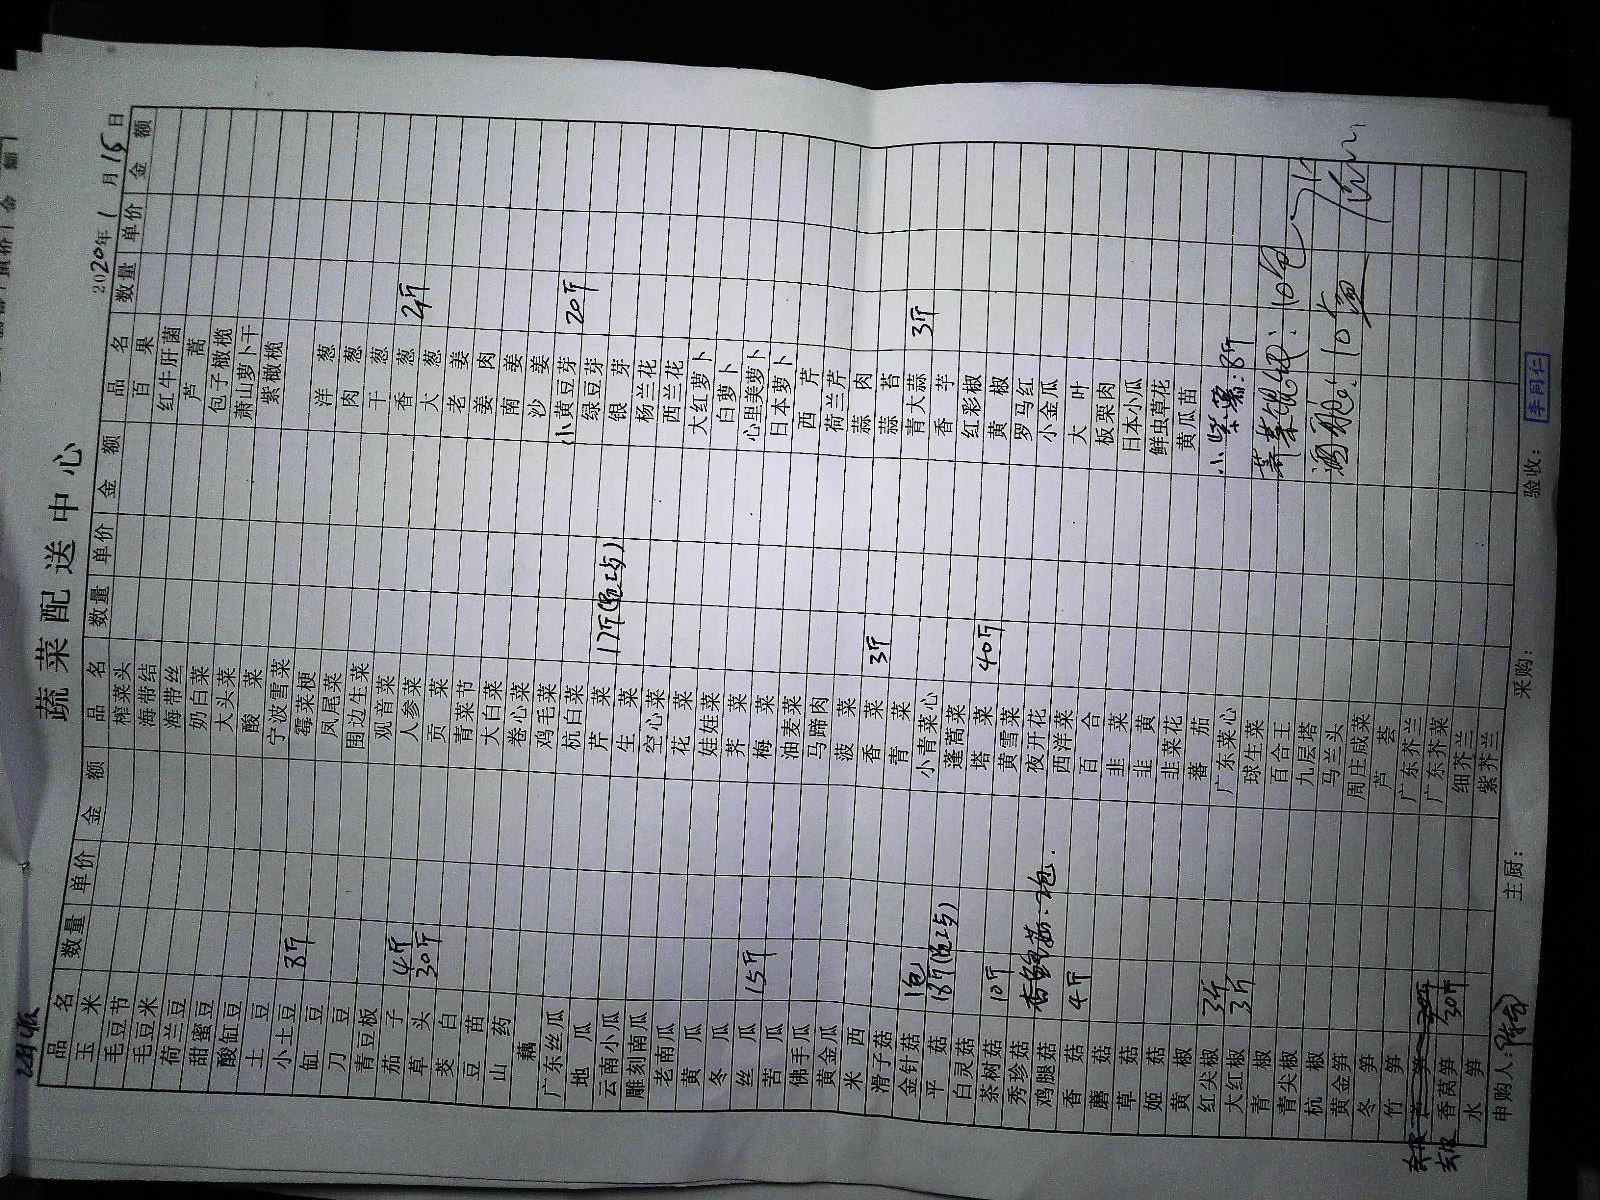 蔬菜配送中心
2020年1月15日
品名 数量 单价 金额 品名 数量 单价 金额 品名 数量 单价 金额
玉米 榨菜头 百果
毛豆节 海带结 红牛肝菌
毛豆米 海带丝 芦蒿
荷兰豆 奶白菜 包子橄榄
甜蜜豆 大头菜 萧山萝卜干
酸缸豆 酸菜 紫橄榄
土豆 宁波雪菜
小土豆 8斤 霉菜梗 洋葱
缸豆 凤尾菜 肉葱
刀豆 围边生菜 干葱
青豆板 观音菜 香葱 2斤
茄子 4斤 人参菜 大葱
草头 30斤 贡菜 老姜
茭白 青菜节 姜肉
豆苗 大白菜 南姜
山药 卷心菜 沙姜
藕 鸡毛菜 小黄豆芽 20斤
广东丝瓜 杭白菜 绿豆芽
地瓜 芹菜 17斤 银芽
云南小瓜 生菜 杨兰花
雕刻南瓜 空心菜 西兰花
老南瓜 花菜 大红萝卜
黄瓜 娃娃菜 白萝卜
冬瓜 荠菜 心里美萝卜
丝瓜 15斤 梅菜 日本萝卜
苦瓜 油麦菜 西芹
佛手瓜 马蹄肉 荷兰芹
黄金瓜 菠菜 蒜肉
米西 香菜 3斤 蒜苔
滑子菇 青菜 青大蒜 3斤
金针菇 1包 小青菜心 香芋
平菇 18斤 蓬蒿菜 红彩椒
白灵菇 塔菜 40斤 黄椒
茶树菇 10斤 黄雪菜 罗马红
秀珍菇 夜开花 小金瓜
鸡腿菇 西洋菜 大叶
香菇 4斤 百合 板栗肉
蘑菇 韭菜 日本小瓜
草菇 韭黄 鲜虫草花
姬菇 韭菜花 黄瓜苗
黄椒 蕃茄 小紫薯:8斤
红尖椒 3斤 广东菜心
大红椒 3斤 球生菜 10包
青椒 百合王
青尖椒 九层塔 10盒
杭椒 马兰头
黄金笋 周庄咸菜
冬笋 芦荟
竹笋 广东芥兰
广东芥菜
香莴笋 30斤 细芥兰
水笋 紫芥兰
申购人: 主厨: 采购: 验收: 李同仁